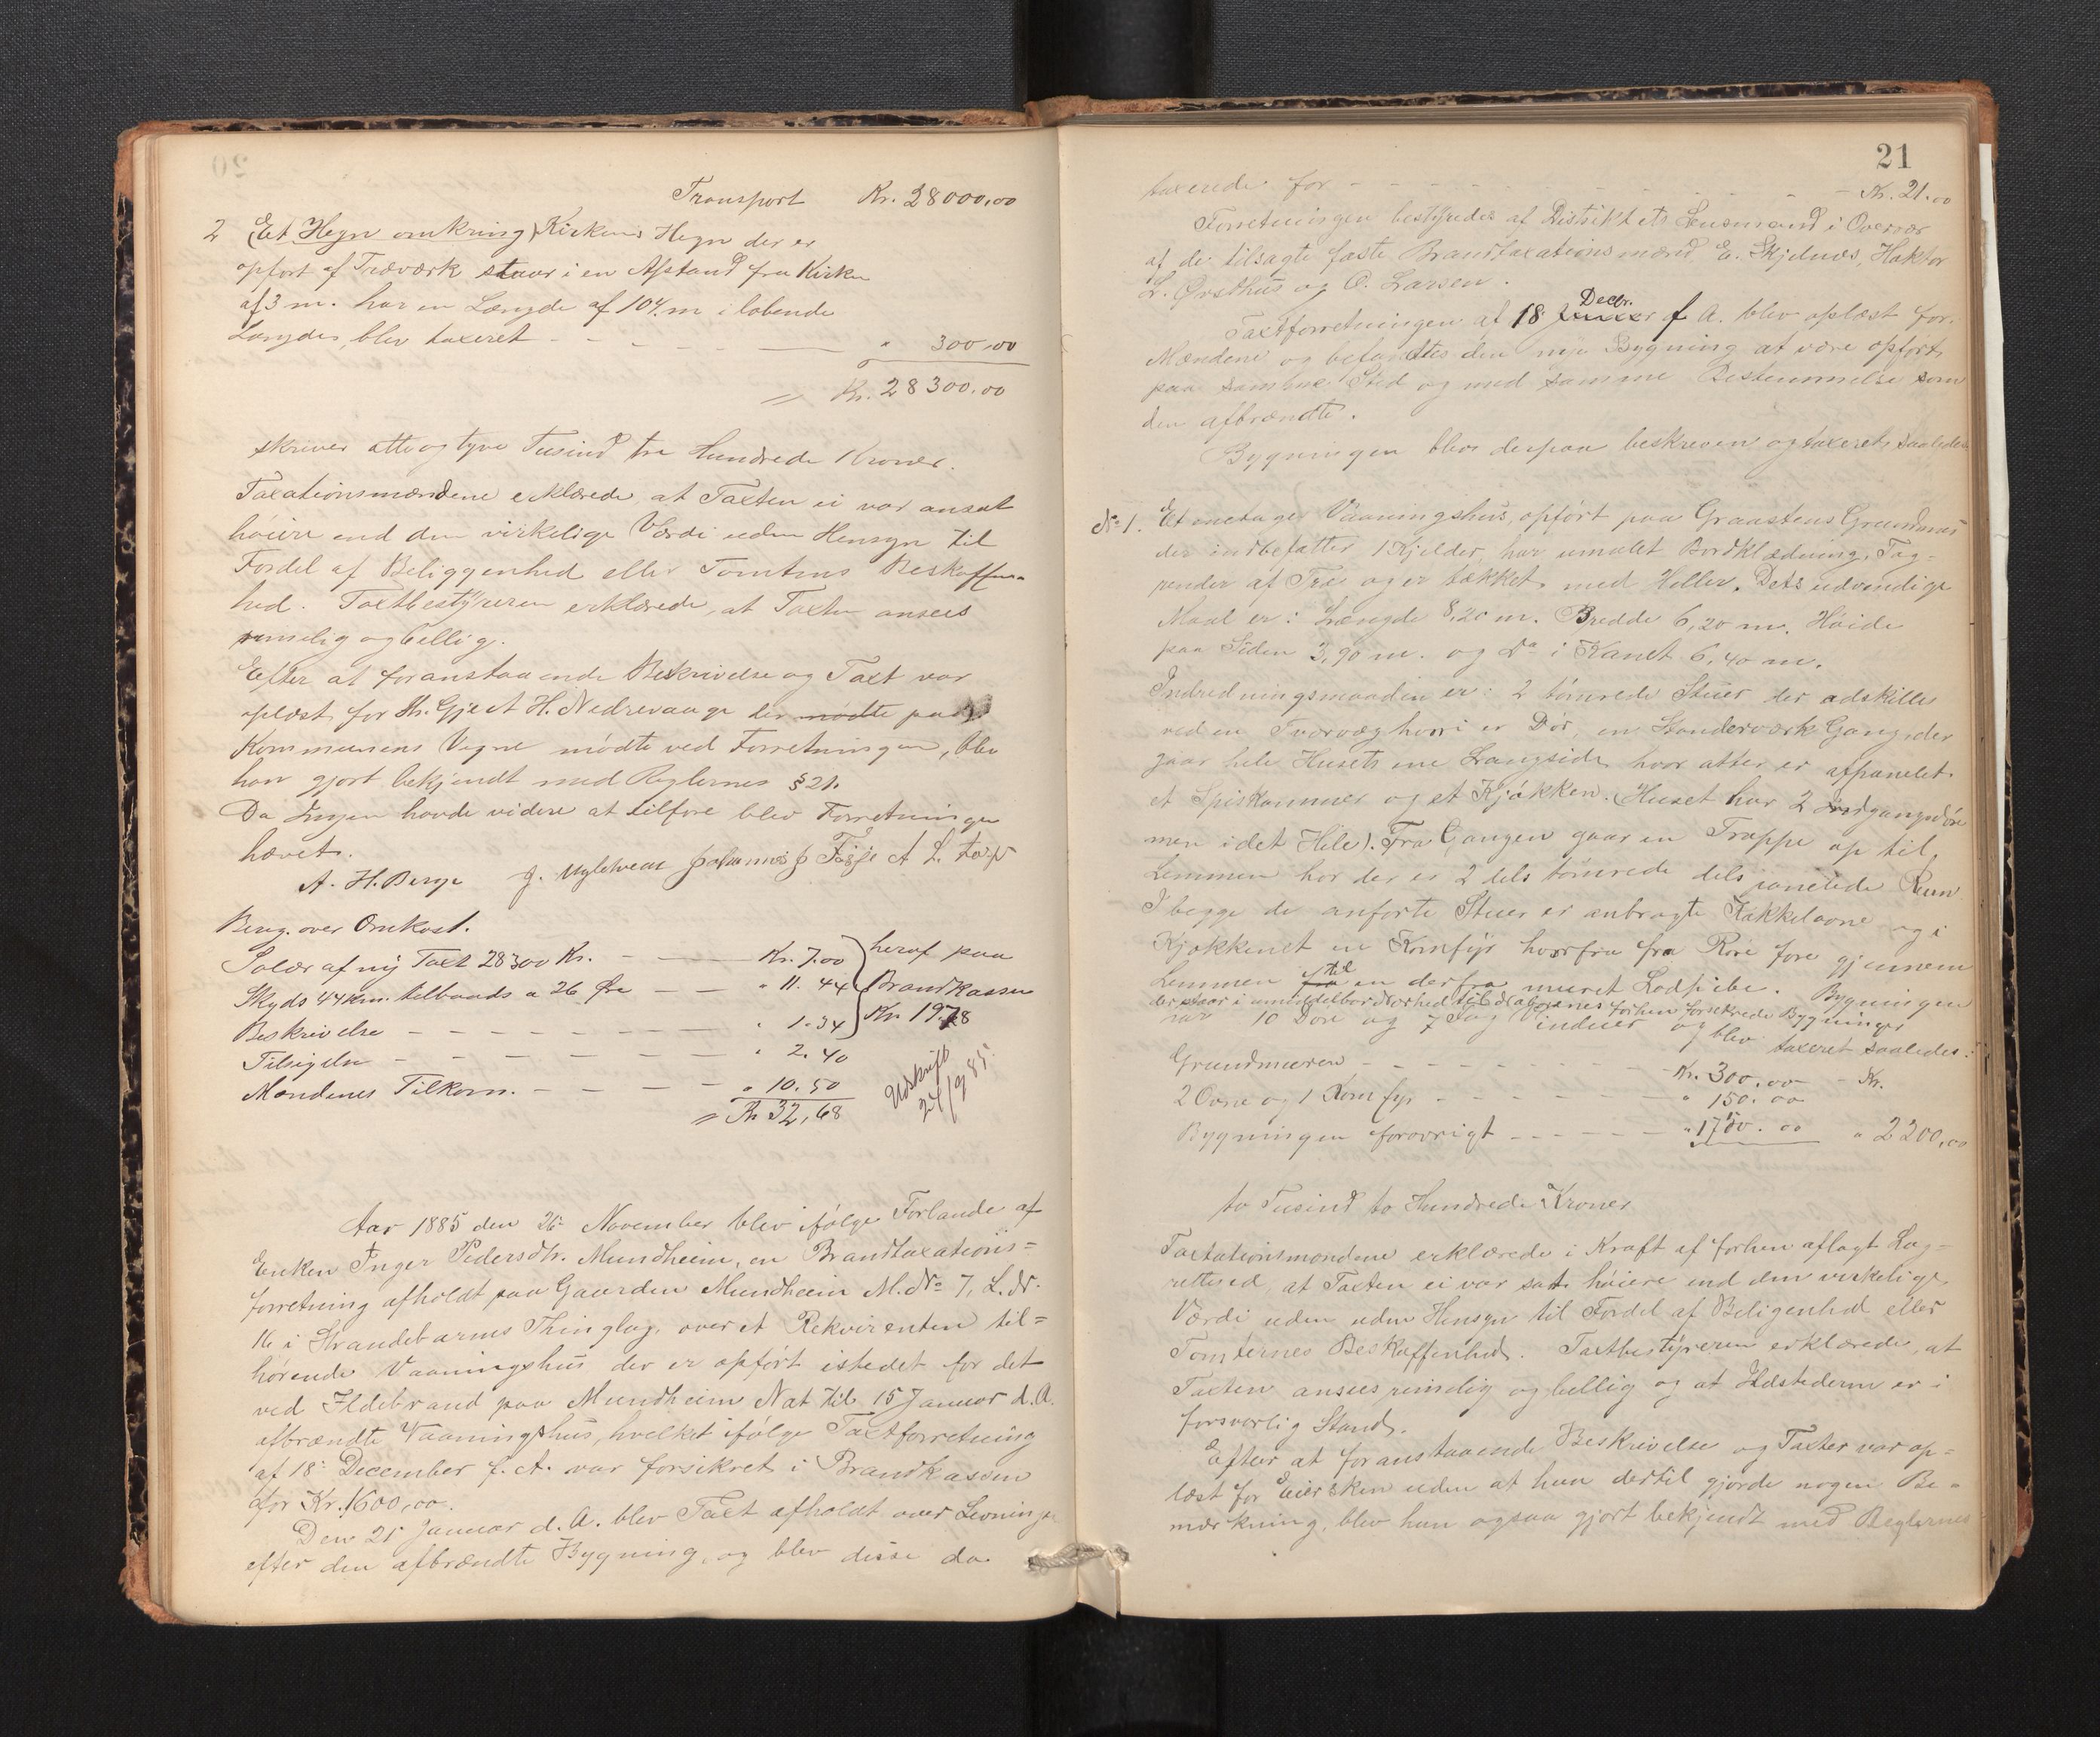 Transport Kr. 28000,00
2 (Et Hegn omkring) Kirkens Hegn der er
opført af Træværk staar i en Afstand fra Kirken
af 3 m. har en Længde af 104 m i løbende
Længder, blev taxeret - - - - " 300,00
= Kr. 28300,00
skriver otte og tyve Tusind tre Hundrede Kroner.
Taxationsmændene erklærede, at Taxten ei var ansat
høiere end den virkelige Værdi uden Hensyn til
Fordel af Beliggenhed eller Tomtens Beskaffen-
hed. Taxtbestyreren erklærede, at Taxten ansees
rimelig og billig.
Efter at foranstaaende Beskrivelse og Taxt var
oplæst for Hr. Gjert H. Nedrevaage der mødte paa
Kommunens Vegne mødte ved Forretningen, blev
han gjort bekjendt med Reglernes § 21.
Da Ingen havde videre at tilføre blev Forretningen
hævet.
A. H. Berge J. Uglehveat Johannes J. A L.
Bereg. over Omkost.
Salær af ny Taxt 28300 Kr. - - Kr. 7.00 heraf paa
Skyds 44 km. tilbaads a 26 Øre - - " 11.44 Brandkassen
Beskrivelse - - - - - - " 1.34 Kr 19.78
Tilsigeln - - - - - - " 2.40
Mændenes Tilkom. - - - - " 10.50
= Kr 32,68
Udskrift
24/9 85.
Aar 1885 den 26 November blev ifølge Forlande af
Enken Inger Pedersdtr. Mundheim, en Brandtaxations=
forretning afholdt paa Gaarden Mundheim M. No 7, L. Nr.
16 i Strandebarms Thinglag, over et Rekvirenten til=
hørende Vaaningshus der er opført istedet for det
ved Ildebrand paa Mundheim Nat til 15 Januar d. A.
afbrændte Vaaningshus, hvilket ifølge Taxtforretning
af 18 December f. A. var forsikret i Brandkassen
for Kr. 1600,00.
Den 21 Januar d. A. blev Taxt afholdt over Levninger
efter den afbrændte Bygning, og blev disse da
21
taxerede for - - - - - - Kr. 21.00
Forretningen bestyredes af Distriktets Lensmand i Overvær
af de tilsagte faste Brandtaxationsmænd E. Skjelnes, Haktor
L. Ørsthus og O. Larsen.
Decbr.
Taxtforretningen af 18 Januar f A. blev oplæst for
Mændene og befandtes den nye Bygning at være opført
paa samme Sted og med samme Bestemmelse som
den afbrændte.
Bygningen blev derpaa beskreven og taxeret saaledes
No 1. Et enetages Vaaningshus, opført paa Graastens Grundmur
der indbefatter 1 Kjelder, har umalet Bordklædning, Tag-
render af Træ og er tækket med Heller. Dets udvendige
Maal er: Længde 8,20 m. Bredde 6,20 m. Høide
paa Siden 3,90 m. og do i Kanet 6,40 m.
Indredningsmaaden er: 2 tømrede Stuer der adskilles
ved en Tværvæg hvori er Dør, en Standerværk Gang, der
gaar hele Husets ene Langside hvor atter er afpanelet
et Spiskammer og et Kjøkken. (Huset har 2 Indgangsdøre
men i det Hele). Fra Gangen gaar en Trappe op til
Lemmen hor der er 2 dels tømrede dels panelede Rum
I begge de anførte Stuer er anbragte Kakkelovne og i
Kjøkkenet en Komfyr hvorfra fra Røre føre gjennem
til
Lemmen fra en derfra muret Lodpibe. Bygningen
der staar i umiddelbar Nærhed til Naboernes forhen forsikrede Bygninger
har 10 Døre og 7 Fag Vinduer og blev taxeret saaledes:
Grundmuren - - - - - - Kr. 300.00 - Kr.
2 Ovne og 1 Komfyr - - - - - " 150.00
Bygningen forøvrigt - - - - - " 1750.00 " 2200,00
to Tusind to Hundrede Kroner
Taxtationsmændene erklærede i Kraft af forhen aflagt Lag-
retteed at Taxten ei var sat høiere end den virkelige
Værdi uden uden Hensyn til Fordel af Beligenhed eller
Tomternes Beskaffenhed. Taxtbestyreren erklærede, at
Taxten ansees rimelig og billig og at Ildstederne er i
forsvarlig Stand.
Efter at foranstaaende Beskrivelse og Taxter var op=
læst for Eiersken uden at hun dertil gjorde nogen Be=
mærkning, blev hun ogsaa gjort bekjendt med Reglernes